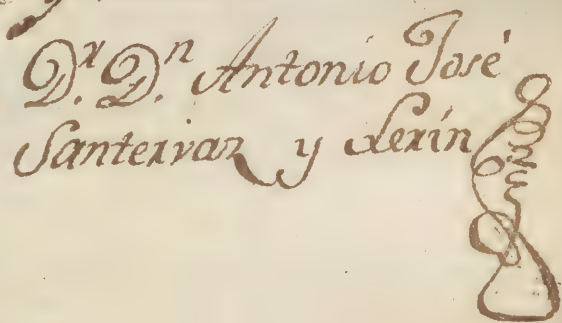 Dr. Dn. Antonio José
Santervaz y Lerín